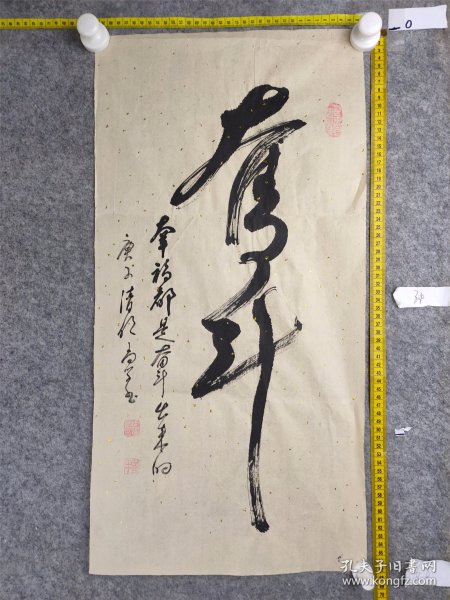 奋斗
幸福都是奋斗出来的
庚子清明
0
孔夫子旧书网
www.kongfz.com